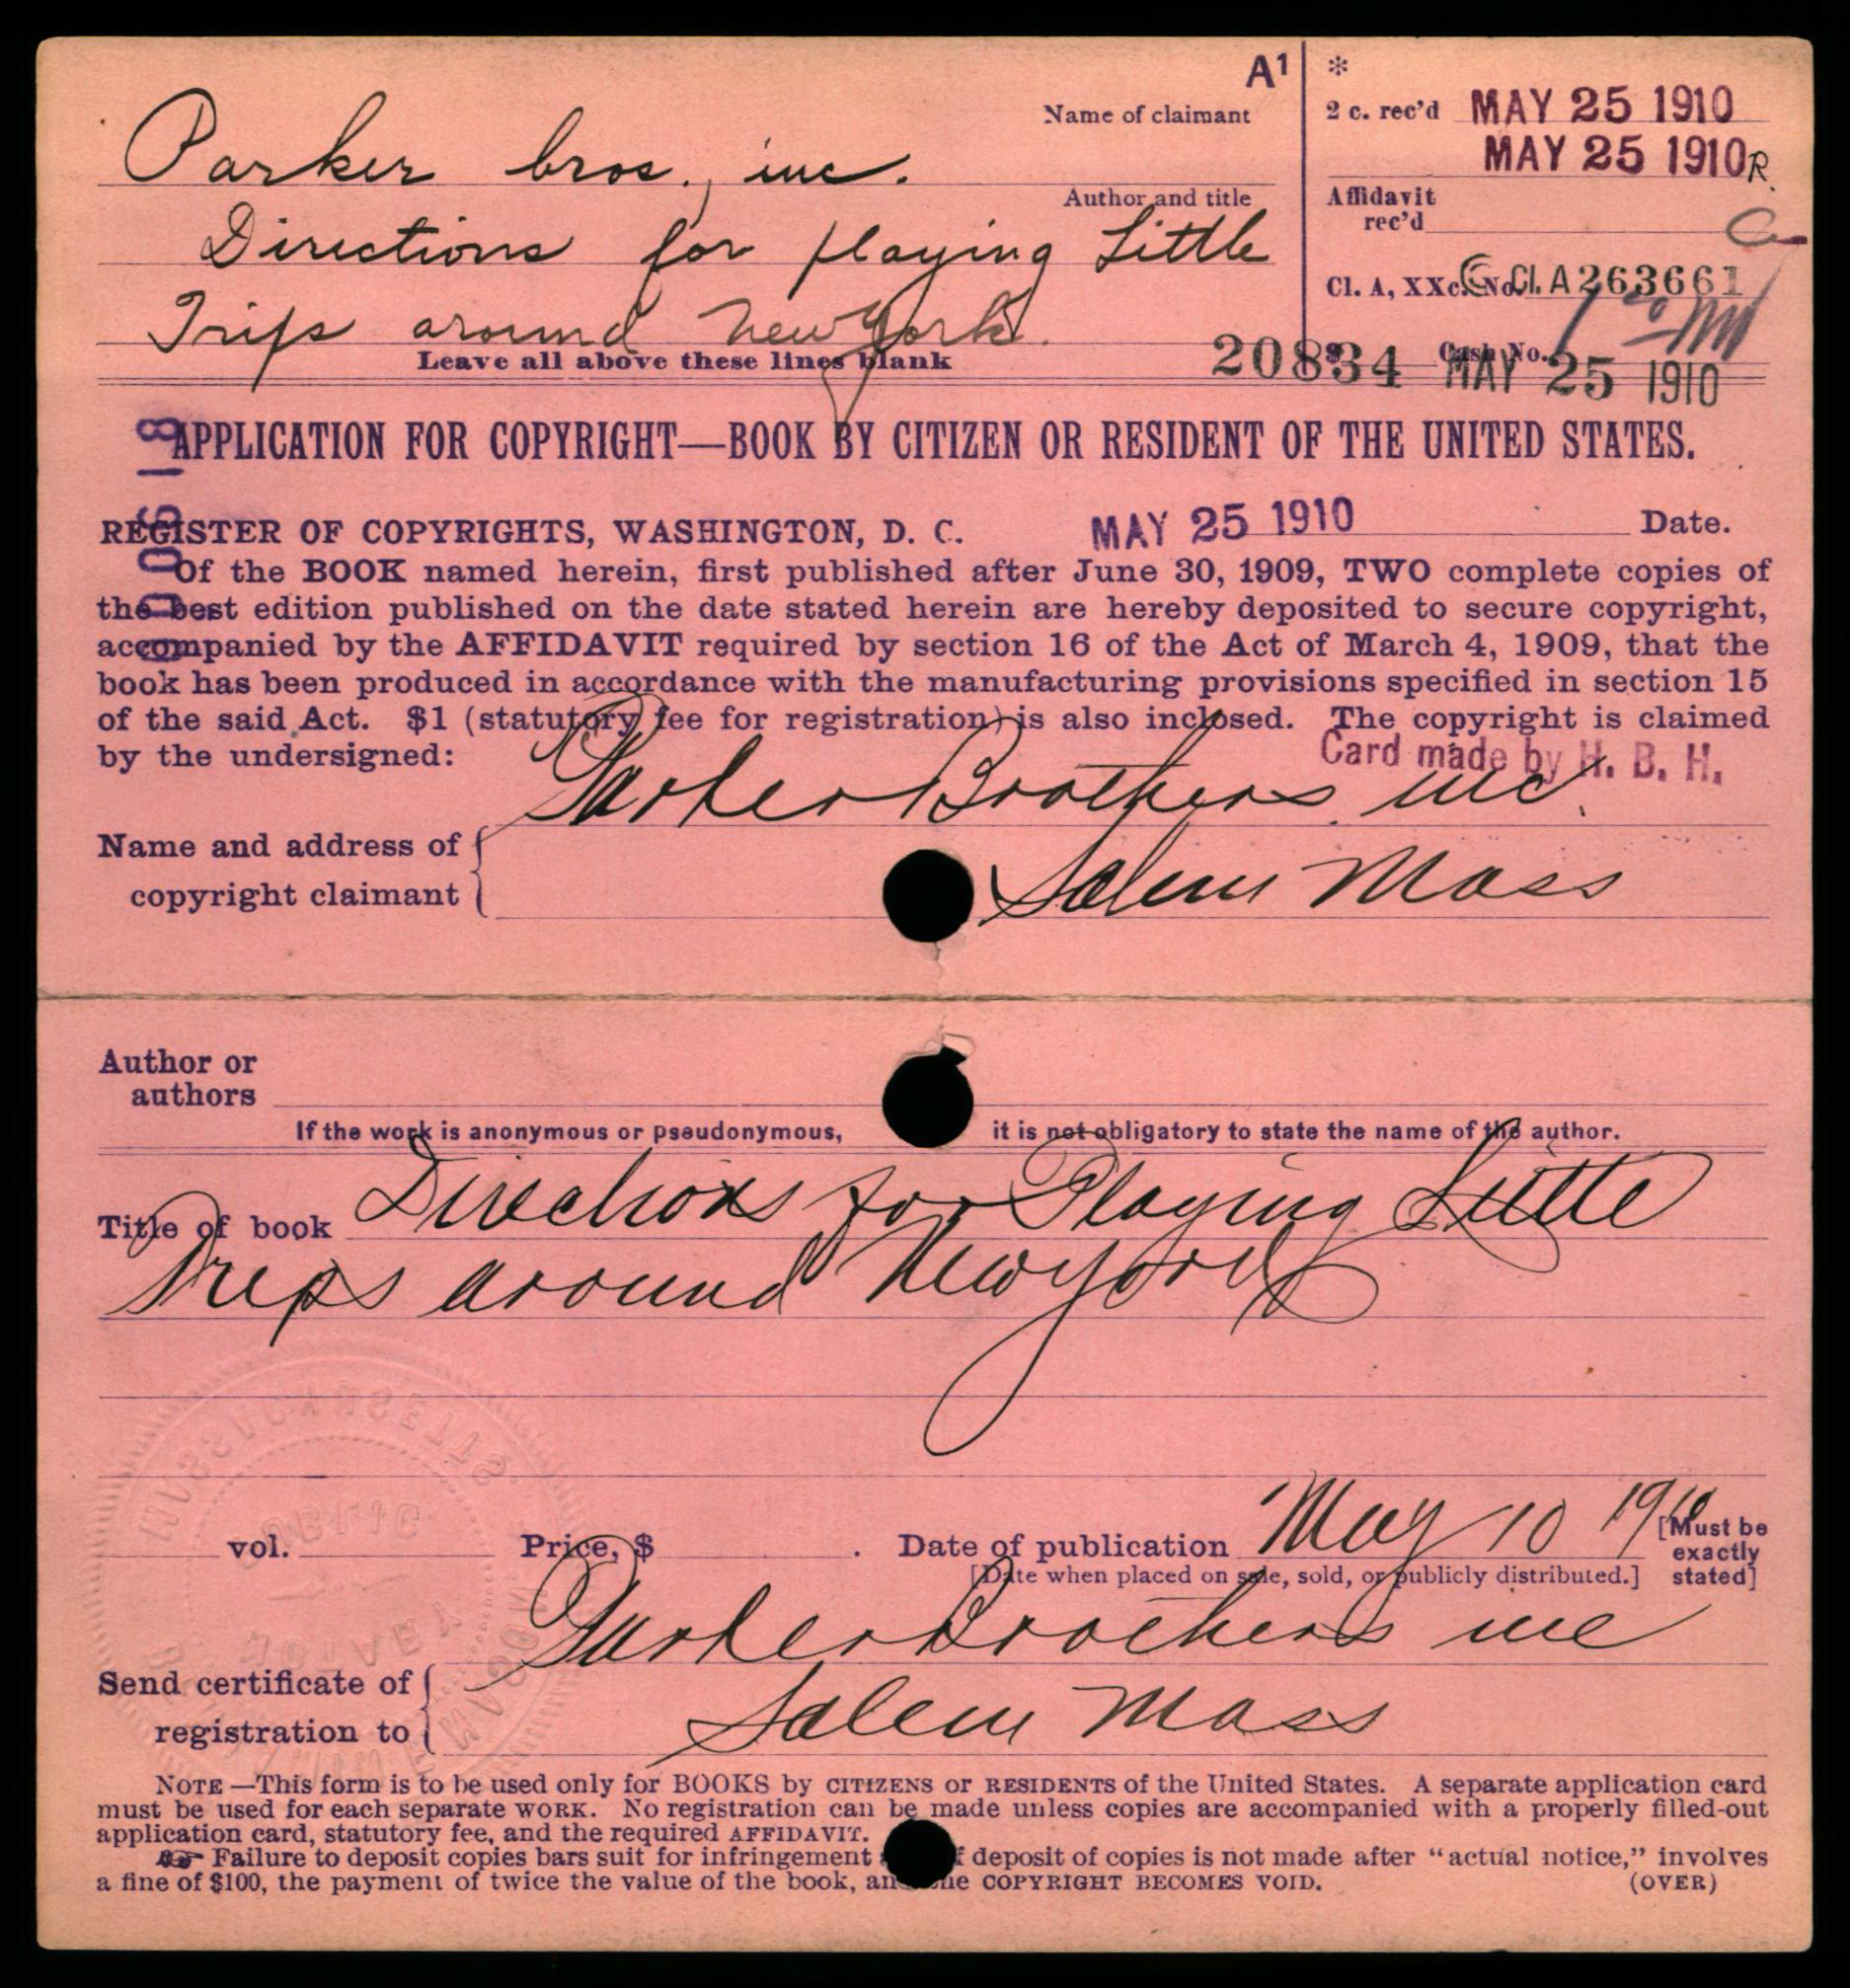 A¹
Name of claimant
Parker bros., inc.
Author and title
Directions for playing Little
Trips around New York.
Leave all above these lines blank
*
2 c. rec'd MAY 25 1910
MAY 25 1910 R.
Affidavit
rec'd
Cl. A, XXc. No. © Cl. A 263661
20834 $ Cash No. MAY 25 1910
APPLICATION FOR COPYRIGHT—BOOK BY CITIZEN OR RESIDENT OF THE UNITED STATES.
REGISTER OF COPYRIGHTS, WASHINGTON, D. C. MAY 25 1910 Date.
Of the BOOK named herein, first published after June 30, 1909, TWO complete copies of
the best edition published on the date stated herein are hereby deposited to secure copyright,
accompanied by the AFFIDAVIT required by section 16 of the Act of March 4, 1909, that the
book has been produced in accordance with the manufacturing provisions specified in section 15
of the said Act. $1 (statutory fee for registration) is also inclosed. The copyright is claimed
by the undersigned:
Card made by H. B. H.
Parker Brothers inc.
Name and address of
copyright claimant
Salem Mass
Author or
authors
If the work is anonymous or pseudonymous, it is not obligatory to state the name of the author.
Title of book Directions for Playing Little
Trips around New York
vol. Price, $ . Date of publication May 10 1910 [Must be
exactly
stated]
[Date when placed on sale, sold, or publicly distributed.]
Parker Brothers inc
Send certificate of
registration to
Salem Mass
NOTE—This form is to be used only for BOOKS by CITIZENS OR RESIDENTS of the United States. A separate application card
must be used for each separate WORK. No registration can be made unless copies are accompanied with a properly filled-out
application card, statutory fee, and the required AFFIDAVIT.
☞ Failure to deposit copies bars suit for infringement deposit of copies is not made after "actual notice," involves
a fine of $100, the payment of twice the value of the book, COPYRIGHT BECOMES VOID. (OVER)